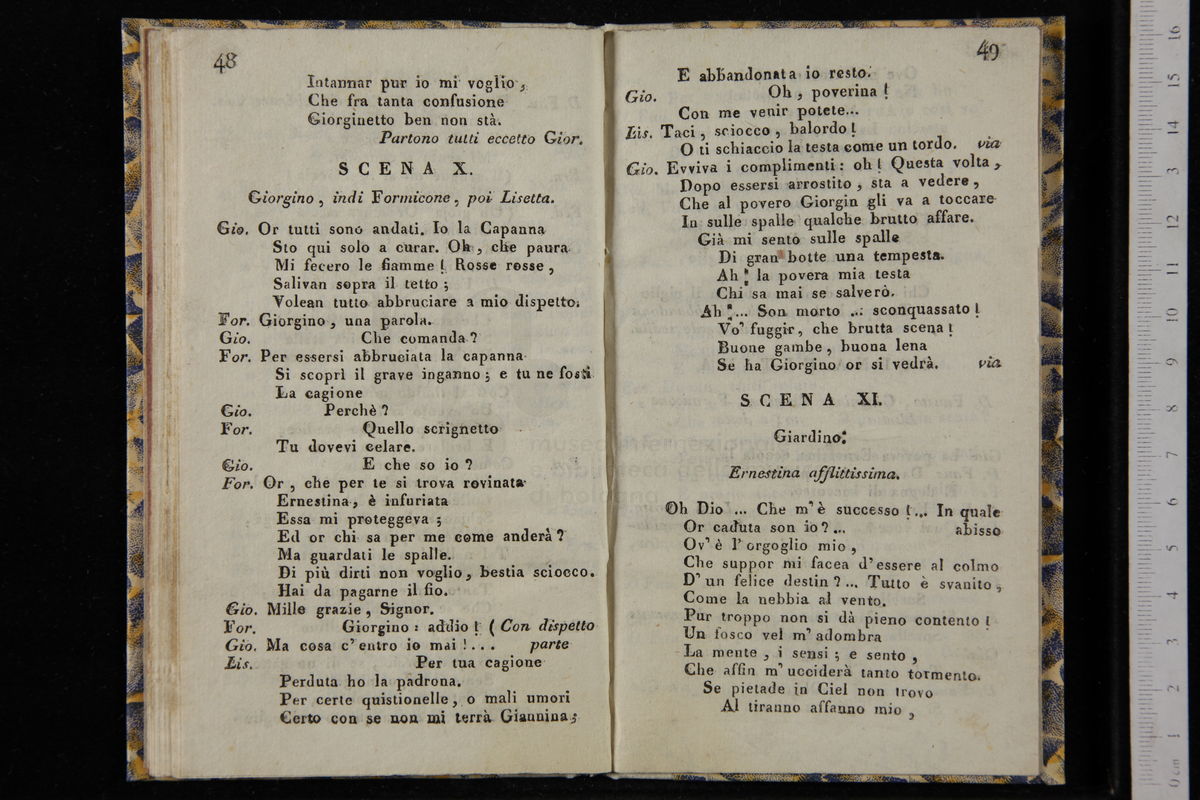 48
Intannar pur io mi voglio,
Che fra tanta confusione
Giorginetto ben non stà.
Partono tutti eccetto Gior.
SCENA X.
Giorgino, indi Formicone, poi Lisetta.
Gio. Or tutti sono andati. Io la Capanna
Sto qui solo a curar. Oh, che paura
Mi fecero le fiamme! Rosse rosse,
Salivan sopra il tetto;
Volean tutto abbruciare a mio dispetto.
For. Giorgino, una parola.
Gio. Che comanda?
For. Per essersi abbruciata la capanna
Si scoprì il grave inganno; e tu ne fosti
La cagione
Gio. Perchè?
For. Quello scrignetto
Tu dovevi celare.
Gio. E che so io?
For. Or, che per te si trova rovinata
Ernestina, è infuriata
Essa mi proteggeva;
Ed or chi sa per me come anderà?
Ma guardati le spalle.
Di più dirti non voglio, bestia sciocco.
Hai da pagarne il fio.
Gio. Mille grazie, Signor.
For. Giorgino: addio! (Con dispetto
Gio. Ma cosa c'entro io mai!... parte
Lis. Per tua cagione
Perduta ho la padrona.
Per certe quistionelle, o mali umori
Certo con se non mi terrà Giannina;
49
E abbandonata io resto.
Gio. Oh, poverina!
Con me venir potete...
Lis. Taci, sciocco, balordo!
O ti schiaccio la testa come un tordo. via
Gio. Evviva i complimenti: oh! Questa volta,
Dopo essersi arrostito, sta a vedere,
Che al povero Giorgin gli va a toccare
In sulle spalle qualche brutto affare.
Già mi sento sulle spalle
Di gran botte una tempesta.
Ah! la povera mia testa
Chi sa mai se salverò.
Ah!... Son morto ... sconquassato!
Vo' fuggir, che brutta scena!
Buone gambe, buona lena
Se ha Giorgino or si vedrà. via
SCENA XI.
Giardino.
Ernestina afflittissima.
Oh Dio ... Che m'è successo!... In quale
Or caduta son io?... abisso
Ov' è l'orgoglio mio,
Che suppor mi facea d'essere al colmo
D'un felice destin?... Tutto è svanito,
Come la nebbia al vento.
Pur troppo non si dà pieno contento!
Un fosco vel m'adombra
La mente, i sensi; e sento,
Che affin m'ucciderà tanto tormento.
Se pietade in Ciel non trovo
Al tiranno affanno mio,